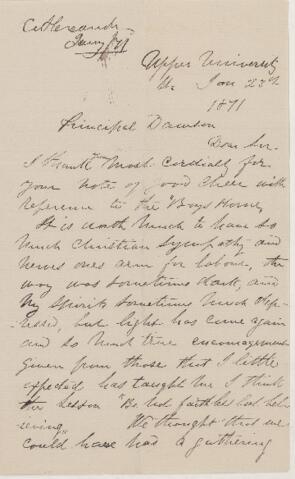 C. Alexander
Jany /71
Upper University
St. Jan 23rd
1871
Principal Dawson
Dear Sir.
I thank most cordially for
your note of good cheer with
reference to the Boys Home,
It is worth much to have so
much Christian Sympathy and
nerves ones arm for labour, the
way was sometimes dark, and
my spirits sometimes much dep-
ressed, but light has come again
and so much true encouragement
given from those that I little
expected has taught me I think
the lesson "Be not faithless but beli-
eving" We thought that we
could have had a gathering